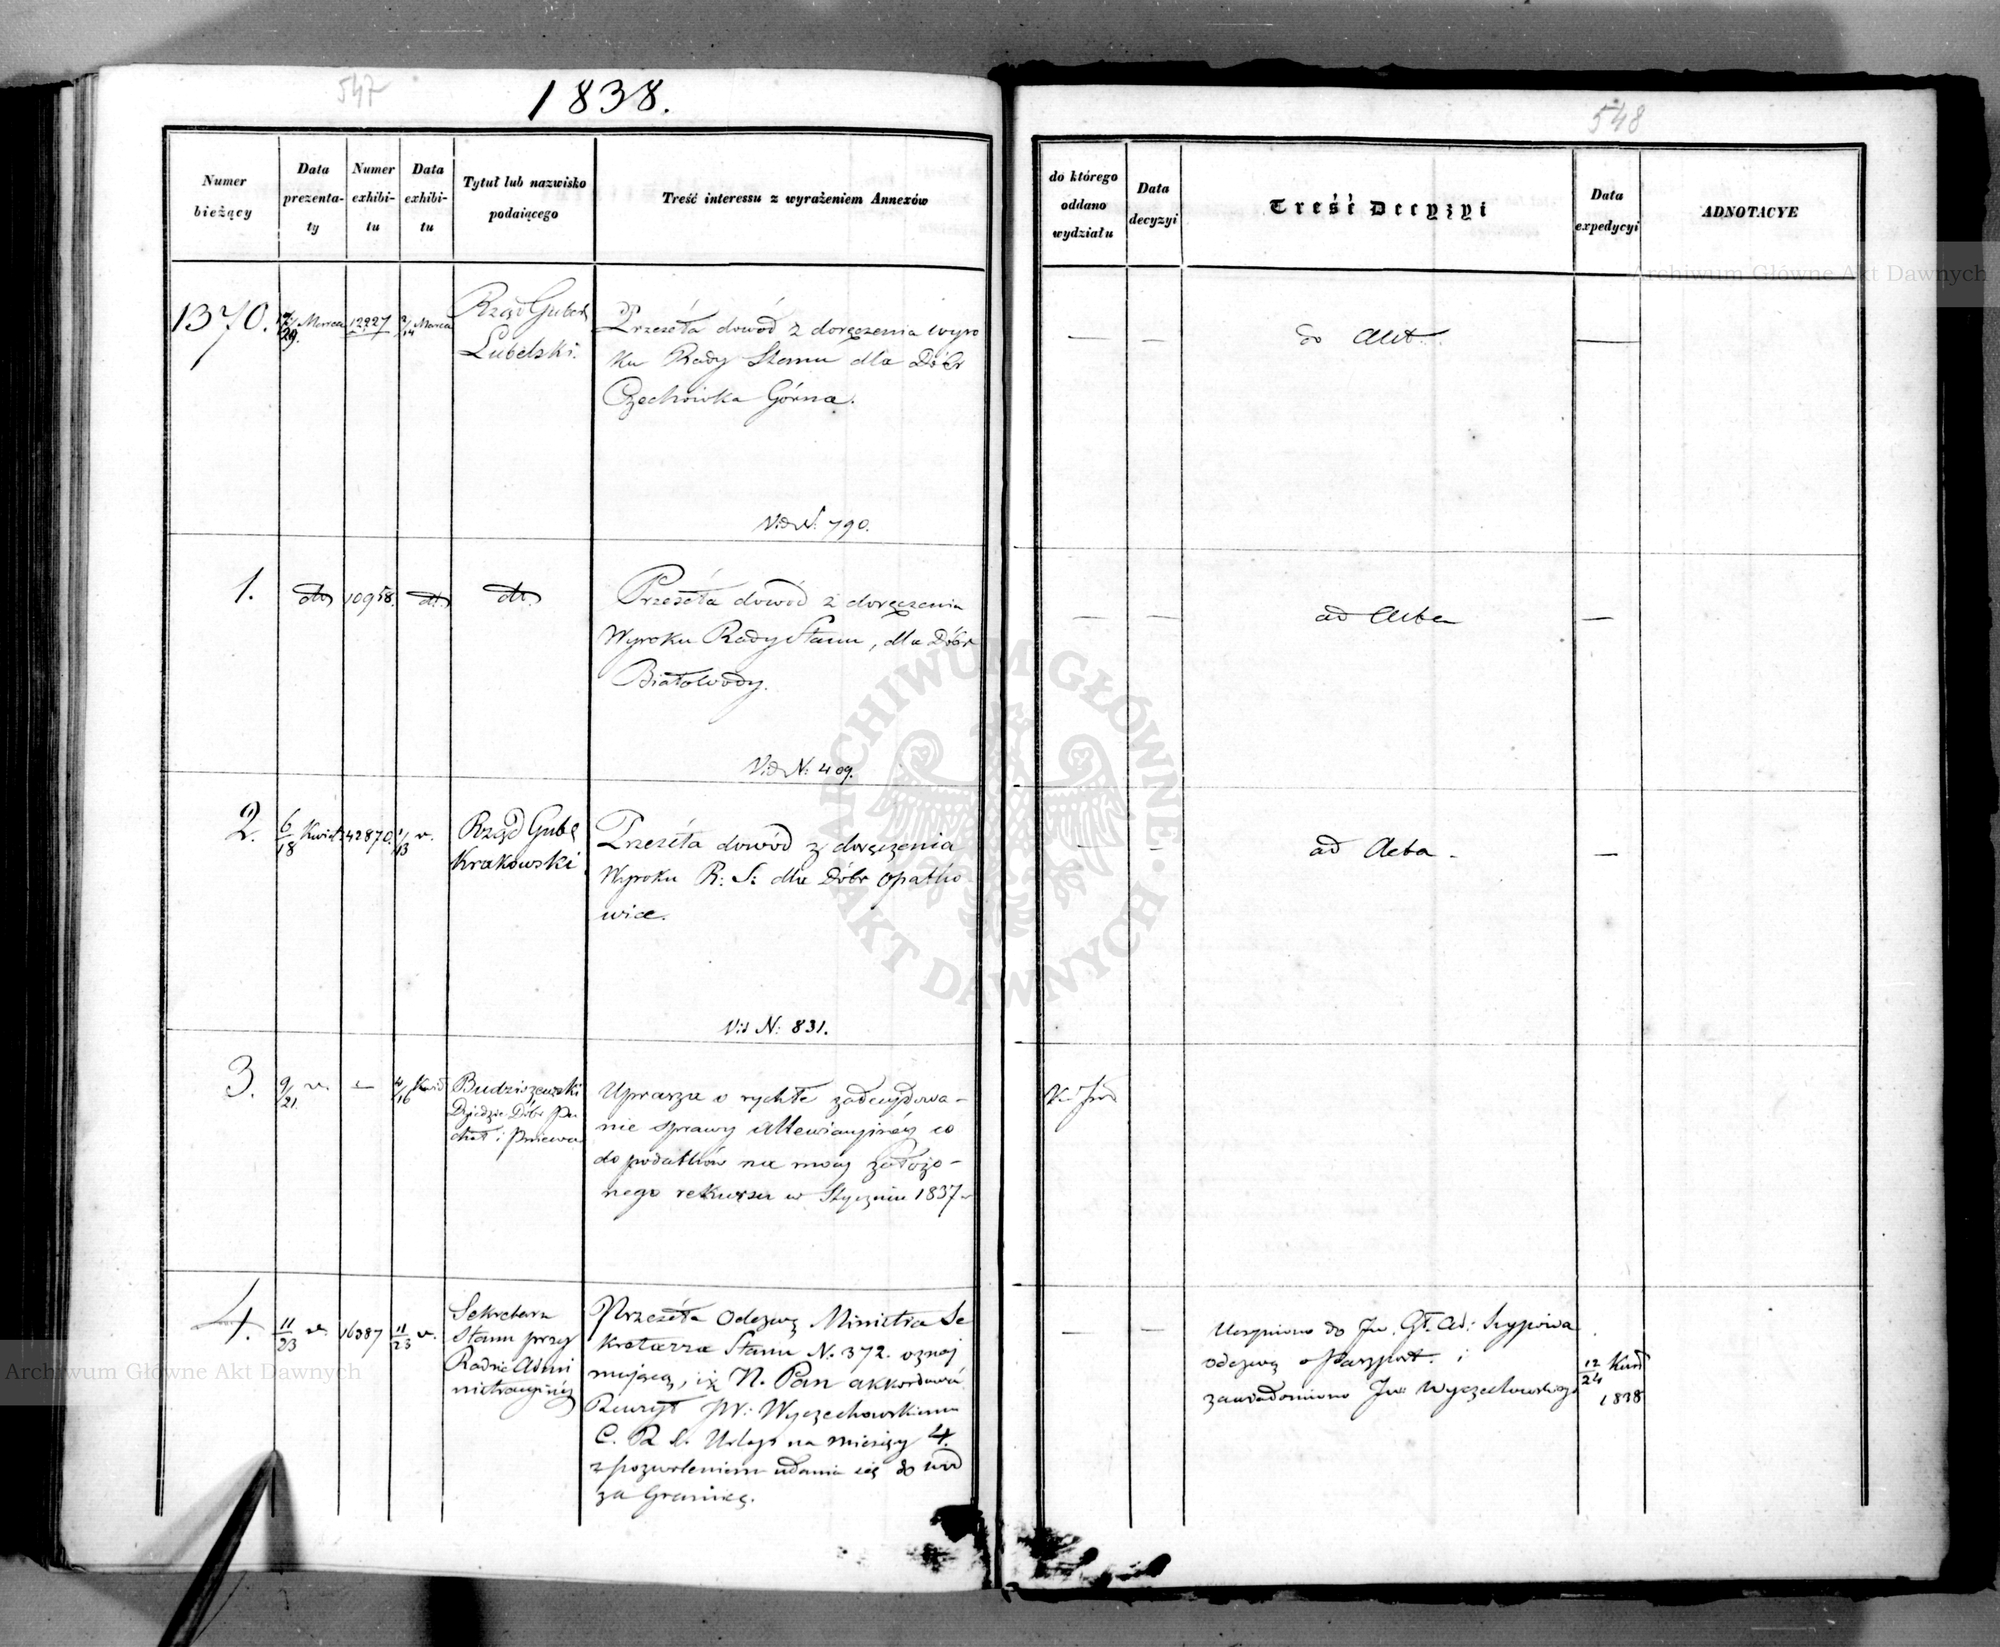 547
1838.
548
Numer bieżący
Data prezenta-ty
Numer exhibi-tu
Data exhibi-tu
Tytuł lub nazwisko podaiącego
Treść interessu z wyrażeniem Annexów
do którego oddano wydziału
Data decyzyi
Treść Decyzyi
Data expedycyi
ADNOTACYE
1370.
17/29 Marca
12227
2/14 Marca
Rząd Gubern
Lubelski.
Przeseła dowód z doręczenia wyro
ku Rady Stanu dla Dóbr
Czechówka Górna.
Vid N. 790.
do Akt.
1.
dtto
10958.
dtto
dtto
Przeséła dowód z doręczenia
Wyroku Rady Stanu, dla Dóbr
Białowody.
Vid N: 409.
ad Acta
2.
6/18 Kwiet
42870.
1/13 v.
Rząd Gub
Krakowski
Przeséła dowód z doręczenia
Wyroku R: S: dla Dóbr Opatko
wice.
Vid N: 831.
ad Acta
3.
9/21 v.
4/16 Kwiet
Budziszewski
Dziedzic Dóbr
i Pniewa
Uprasza o rychłe zadecydowa-
nie sprawy allewiacyjnéy co
do podatków na mocy założo-
nego rekursu w Styczniu 1837 r
4.
11/23 v.
16387
11/23 v.
Sekretarz
Stanu przy
Radzie Admi
nistracyjnéy
Przeséła Odezwę Ministra Se
kretarza Stanu N. 372. oznaj
mującą, iż N. Pan akkordował
JW: Wyczechowskiemu
Urlop na miesięcy 4.
z pozwoleniem udania się do wód
za Granicę.
Uczyniono do Jw. Gł. Ad: Szypowa
odezwę o Paszport. i
zawiadomiono Jw: Wyczechowskiego
12/24 Kwiet
1838
Archiwum Główne Akt Dawnych
ARCHIWUM GŁÓWNE AKT DAWNYCH
Archiwum Główne Akt Dawnych